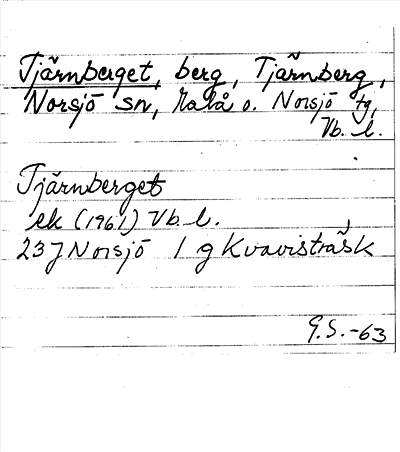 Tjärnberget, berg, Tjärnberg,
Norsjö sn, Malå o. Norsjö tg,
Vb. l.
Tjärnberget
ek (1961) Vb. l.
23J Norsjö 1 g Kvavisträsk
G.S. -63